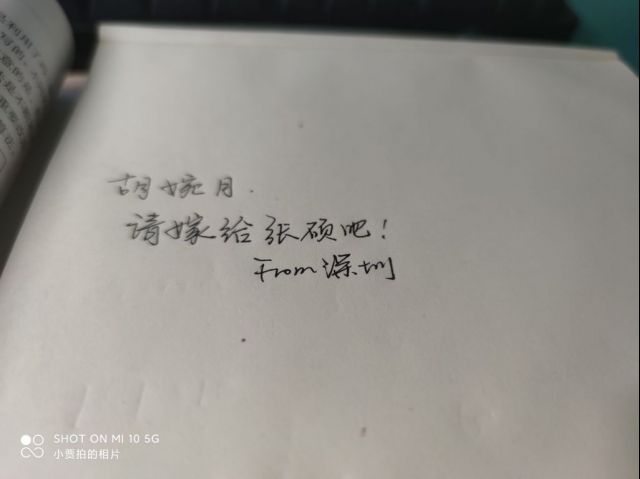 胡婉月.
请嫁给张硕吧!
From深圳
SHOT ON MI 10 5G
小贾拍的相片